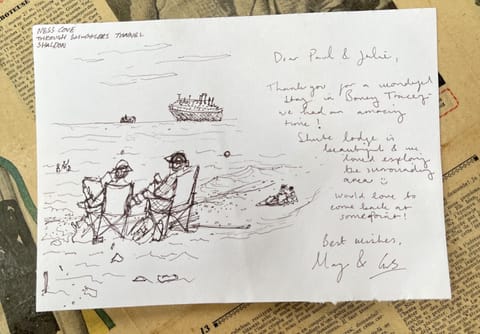 NESS COVE
THROUGH SMUGGLERS TUNNEL
SHALDON
Dear Paul & Julie,
Thank you for a wonderful
stay in Bovey Tracey -
we had an amazing
time!
Shute lodge is
beautiful & we
loved exploring
the surrounding
area
Would love to
come back at
somepoint!
Best wishes,
May &
13